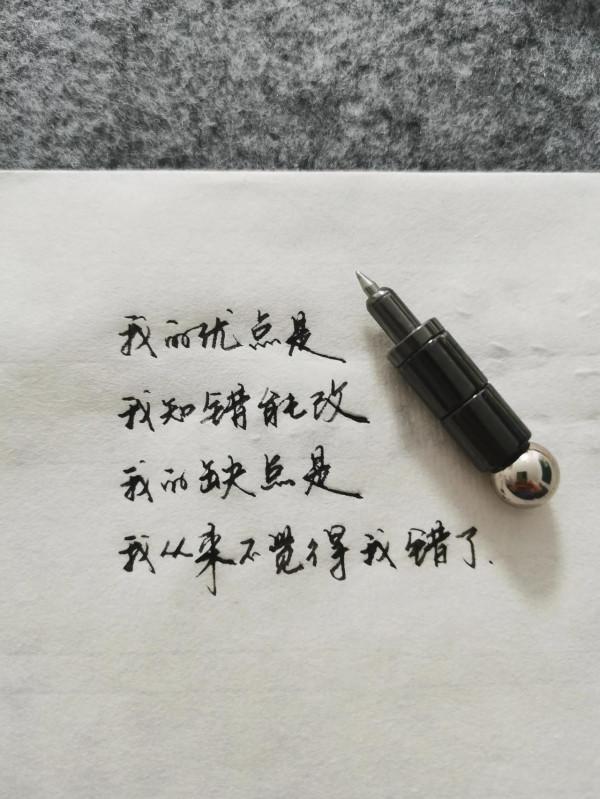 我的优点是
我知错能改
我的缺点是
我从来不觉得我错了.